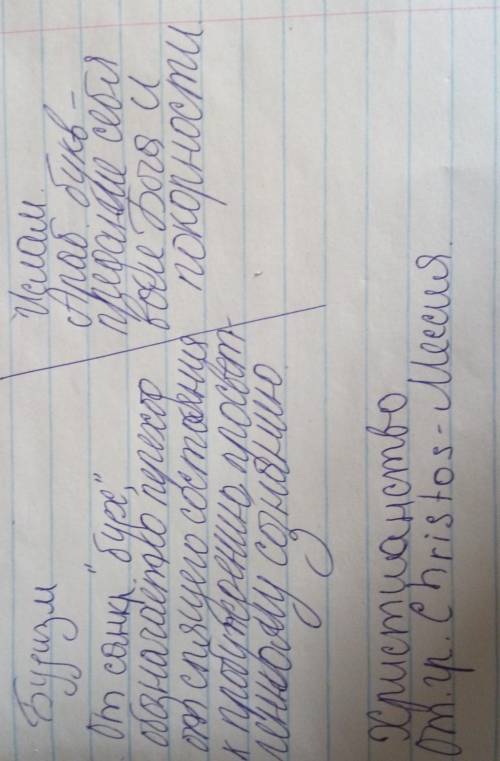 Буддизм
От санкр. "будх",
обозначает что переход
от спящего состояния
к пробуждению, просвет-
лённому сознанию
Ислам.
Араб. букв -
предание себя
воле Бога и
покорности
Христианство
от. гр. Christos - Мессия.